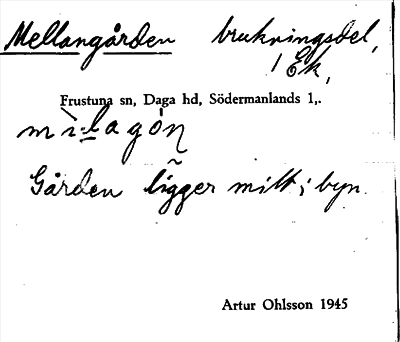 Mellangården brukningsdel,
1 Ek,
Frustuna sn, Daga hd, Södermanlands l,.
Gården ligger mitt i byn.
Artur Ohlsson 1945